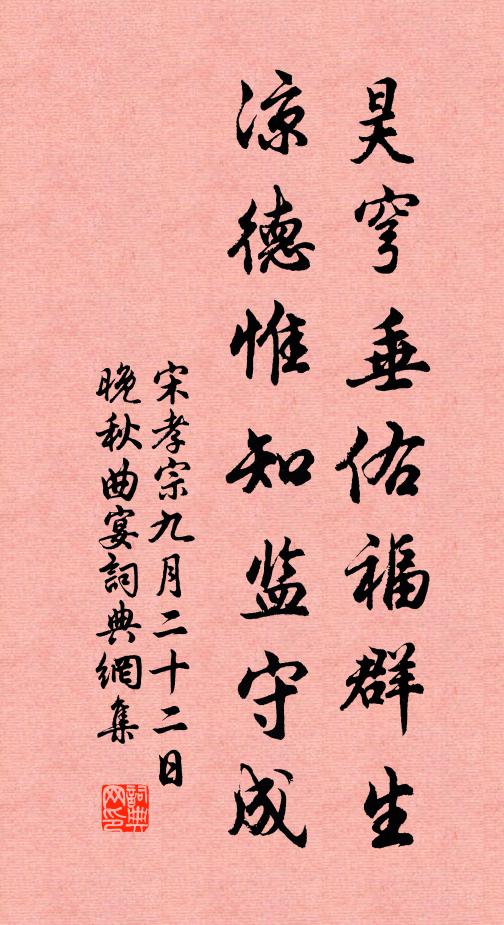 昊穹垂佑福群生
凉德惟知监守成
宋孝宗九月二十二日
晚秋曲宴詞典網集
詞典网印